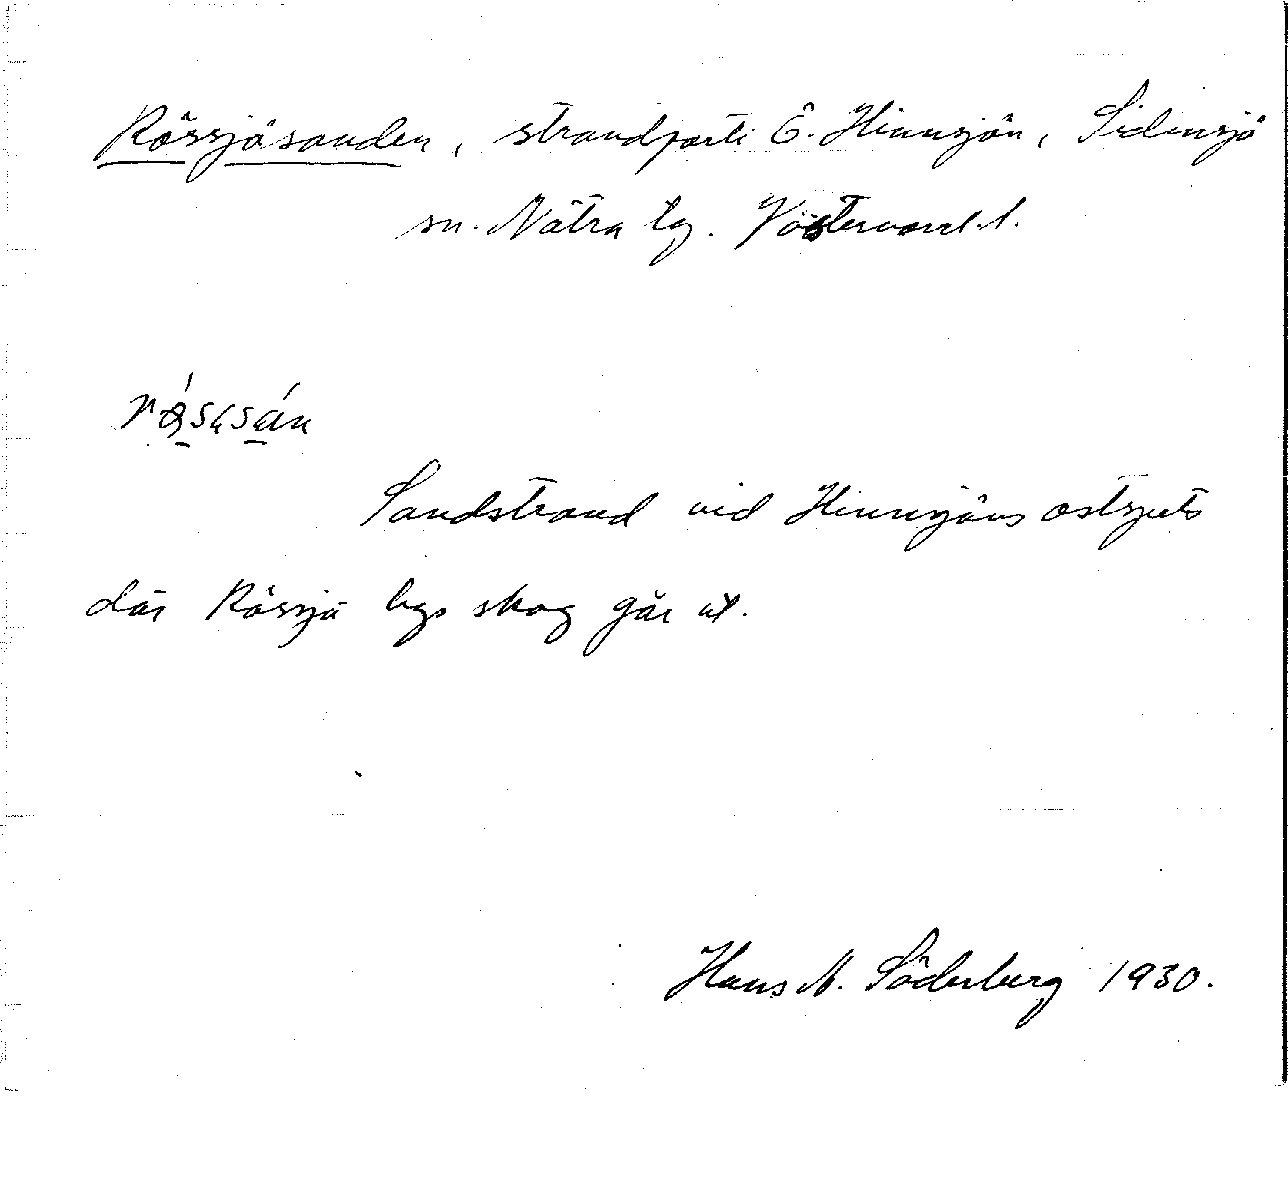 Rössjösanden, strandparti Ö. Hinnsjön, Sidensjö
sn. Nätra tg. Västernorrl. l.
Sandstrand vid Hinnsjöns ostspets
där Rössjö bys skog går ut.
Hans N. Söderberg 1930.